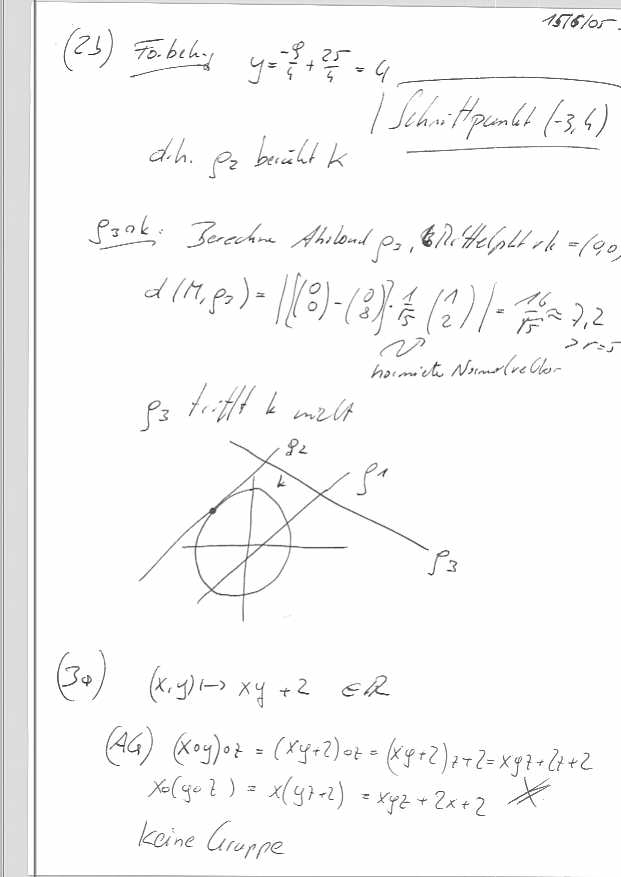 15/6/05
(2b) Forts. y = -9/4 + 25/4 = 4
Schnittpunkt (-3,4)
d.h. g2 berührt k
g3∩k: Berechne Abstand g3, Mittelpkt v k = (0,0)
d(M,g3) = |[(0 0) - (0 8)] · 1/√5 (1 2)| = 16/√5 ≈ 7,2
> r=5
normierter Normalvektor
g3 trifft k nicht
g2
k
g1
g3
(3a) (x,y) ↦ xy + 2 ∈ ℝ
(AG) (x∘y)∘z = (xy+2)∘z = (xy+2)z+2 = xyz+2z+2
x∘(y∘z) = x(yz+2) = xyz + 2x + 2
keine Gruppe